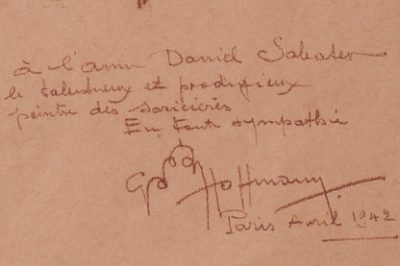 à l'ami Daniel
le talentueux et prodigieux
peintre des sorcières
En toute sympathie
G Hoffmann
Paris Avril 1942